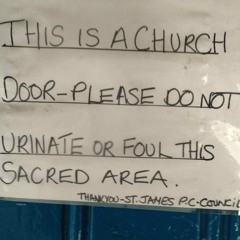 THIS IS A CHURCH
DOOR-PLEASE DO NOT
URINATE OR FOUL THIS
SACRED AREA.
THANKYOU-ST. JAMES P.C-COUNCIL